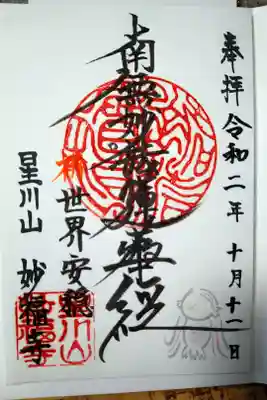 奉拝 令和二年 十月十一日
南無妙法蓮華経
祈世界安穏
星川山 妙福寺